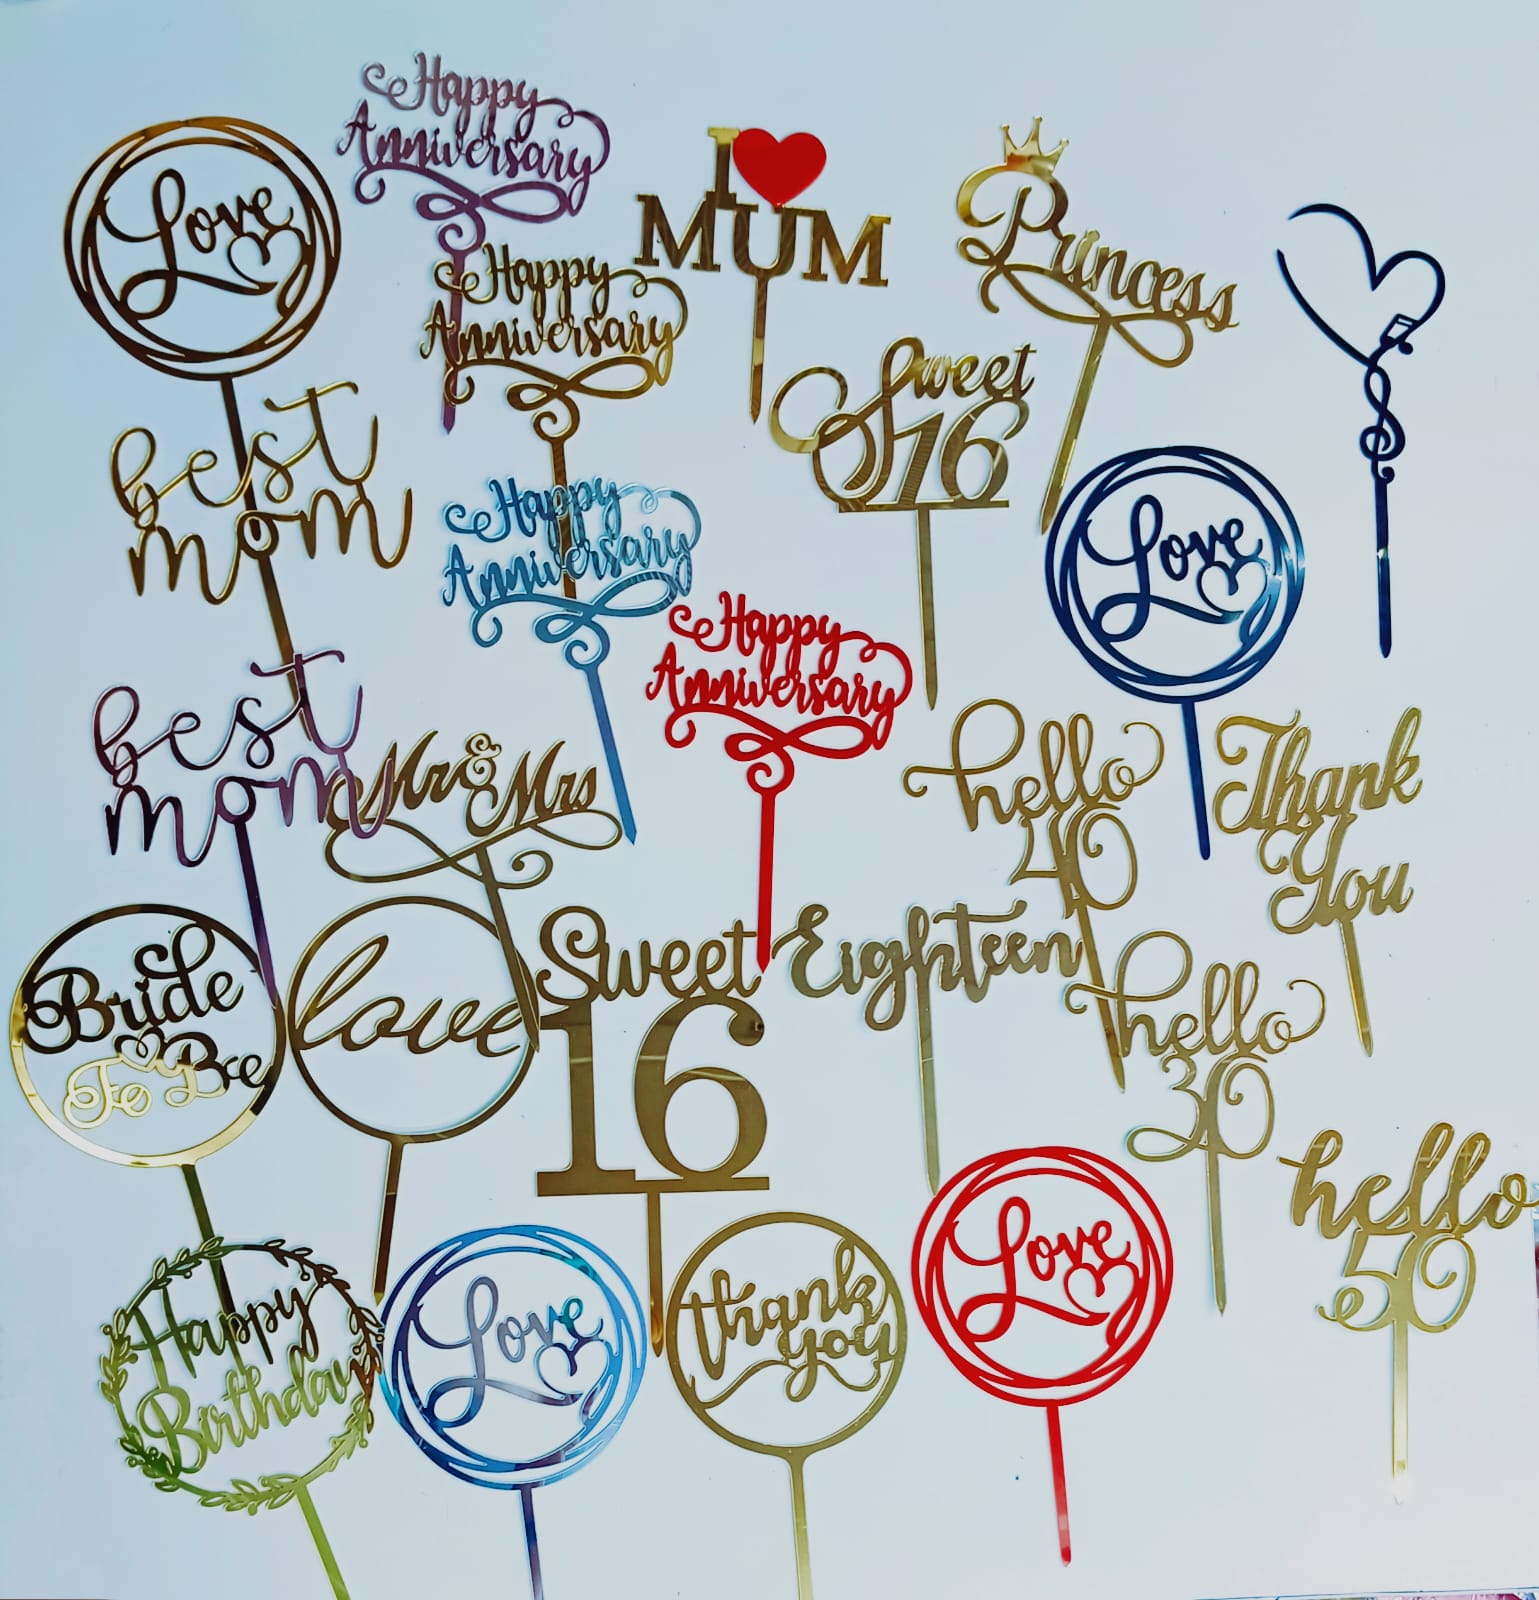 Happy
Anniversary
Love
I
MUM
Princess
Happy
Anniversary
Sweet
16
best
mom
Happy
Anniversary
Love
Happy
Anniversary
best
mom
Mr & Mrs
hello
40
Thank
You
Bride
To Bee
love
Sweet
16
Eighteen
hello
30
hello
50
Happy
Birthday
Love
thank
you
Love